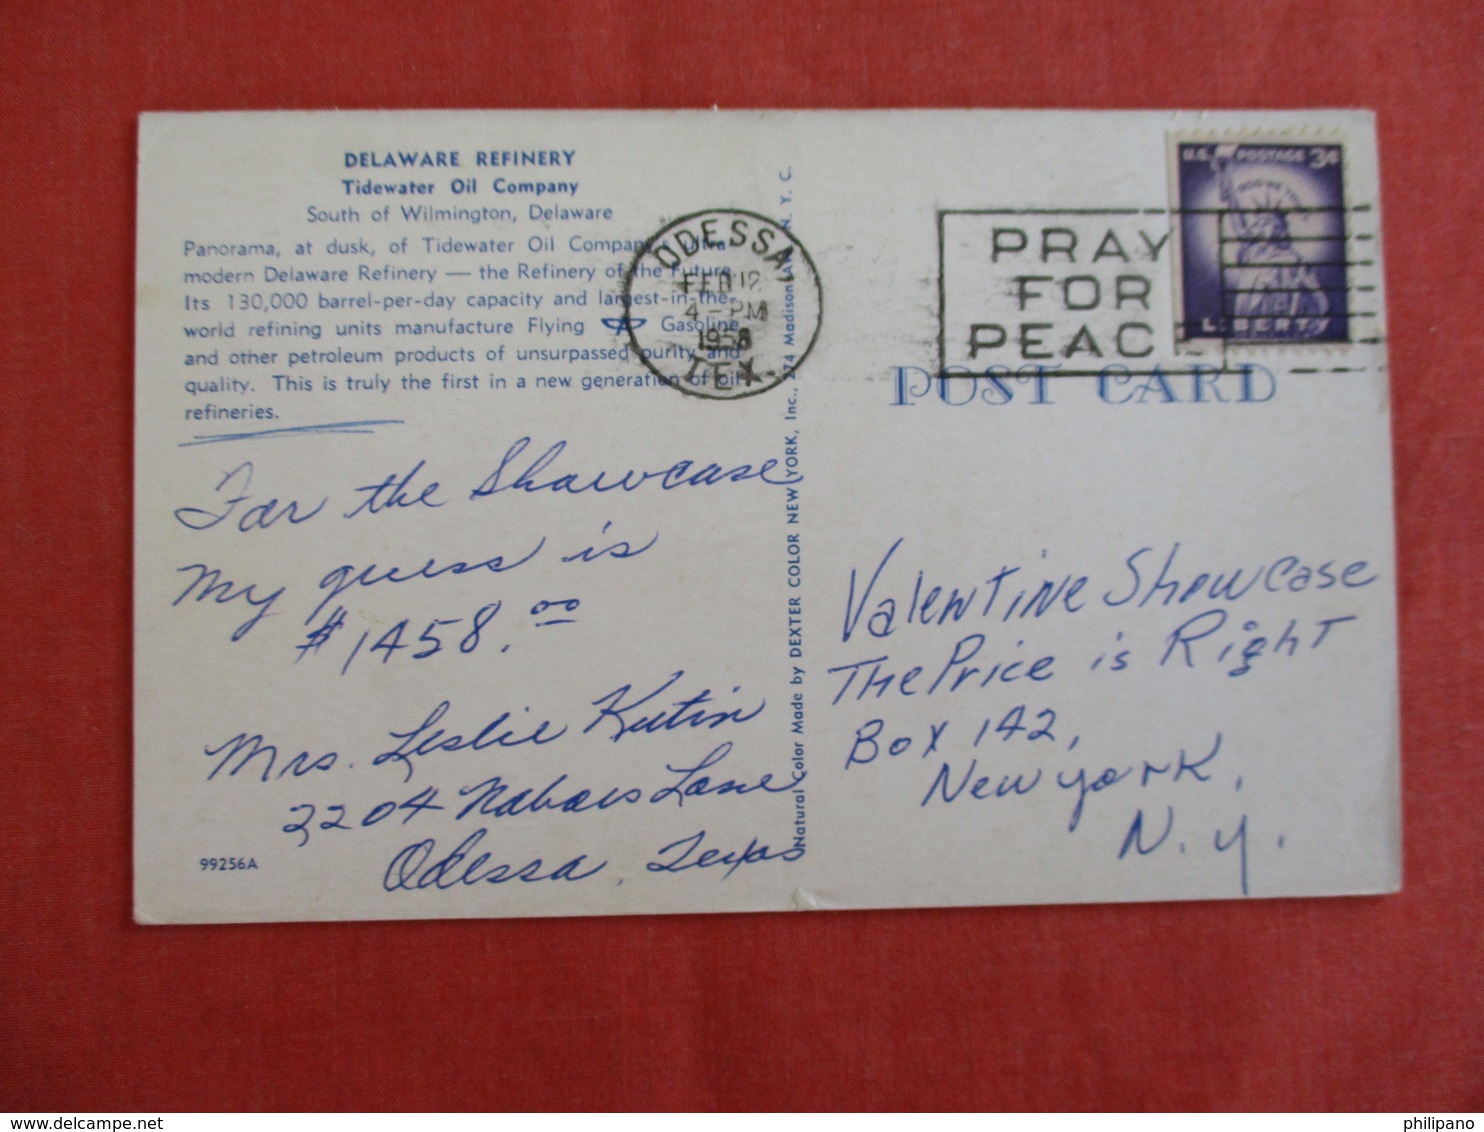 DELAWARE REFINERY
Tidewater Oil Company
South of Wilmington, Delaware
Panorama, at dusk, of Tidewater Oil Company's ultra-
modern Delaware Refinery — the Refinery of the Future.
Its 130,000 barrel-per-day capacity and largest-in-the-
world refining units manufacture Flying A Gasoline
and other petroleum products of unsurpassed purity and
quality. This is truly the first in a new generation of oil
refineries.
For the Showcase
My guess is
$1458.00
Mrs. Leslie Kutin
2204 Lane
Odessa, Texas
99256A
Natural Color Made by DEXTER COLOR NEW YORK, Inc., 274 Madison Ave. N. Y. C.
ODESSA,
FEB 12
4 - PM
1958
TEX.
PRAY
FOR
PEACE
U.S. POSTAGE 3¢
IN GOD WE TRUST
LIBERTY
POST CARD
Valentine Showcase
The Price is Right
Box 142,
New York,
N.Y.
www.delcampe.net
philipano